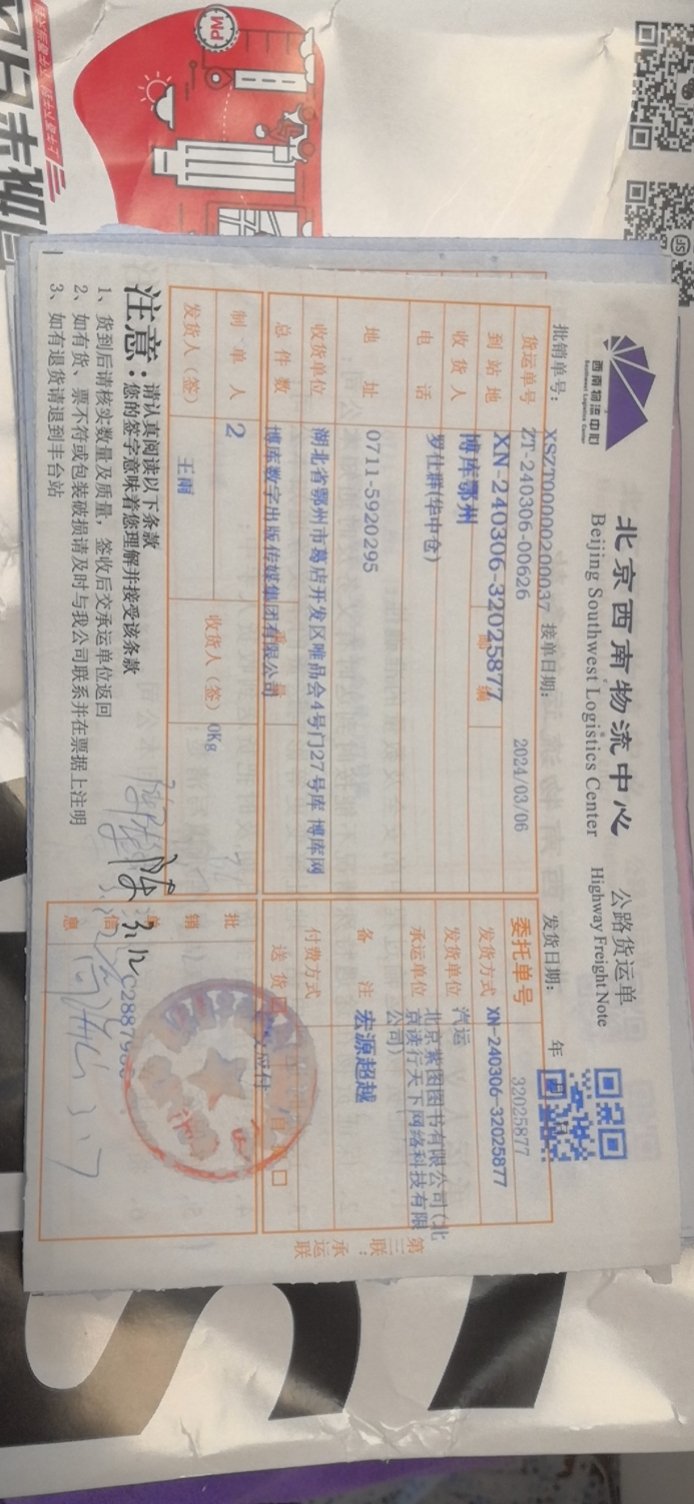 西南物流中心
Southwest Logistics Center
北京西南物流中心 公路货运单
Beijing Southwest Logistics Center Highway Freight Note
批销单号: XSZT00000200037 接单日期: 2024/03/06 发货日期: 年 月
货运单号 ZT-240306-00626 委托单号 32025877
到站地 XN-240306-32025877 邮编 发货方式 XN-240306-32025877
收货人 博库鄂州 发货单位 汽运
电话 罗仕群(华中仓) 承运单位 北京紫图图书有限公司(北京读行天下网络科技有限公司)
地址 0711-5920295 备注 宏源超越
收货单位 湖北省鄂州市葛店开发区唯品会4号门27号库 博库网 付费方式
总件数 博库数字出版传媒集团有限公司 送货
制单人 2 0Kg 批销单信息
发货人(签) 王雨 收货人(签)
第三联:承运联
注意:
请认真阅读以下条款
您的签字意味着您理解并接受该条款
1、货到后请核实数量及质量,签收后交承运单位返回
2、如有货、票不符或包装破损请及时与我公司联系并在票据上注明
3、如有退货请退到丰台站
3.12
3.17
PM